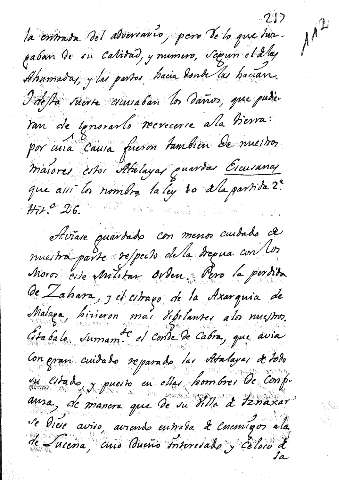 217
112
la entrada del adversario, pero de lo que juz-
gaban de su calidad, y numero, segun el de las
Ahumadas, y las partes, hacia donde las hacian.
I desta suerte escusaban los daños, que pudie-
ran de ignorarlo recrecerse a la tierra:
por cuia causa fueron tambien de nuestros
maiores estos Atalayas guardas Escusanas
que assi los nombra la ley 10 de la partida 2ª
tit.º 26.
Aviase guardado con menos cuidado de
nuestra parte respecto de la tregua con los
Moros este Militar orden. Pero la perdida
de Zahara, y el estrago de la Axarquia de
Malaga, hicieron más vigilantes a los nuestros.
Estabalo sumam.te el conde de Cabra, que avia
con gran cuidado reparado las Atalayas de todo
su estado, y puesto en ellas hombres de confi-
anza, de manera que de su Villa de Iznaxar
se diese aviso, aviendo entrada de enemigos a la
de Lucena, cuio Dueño interesado y celoso de
la